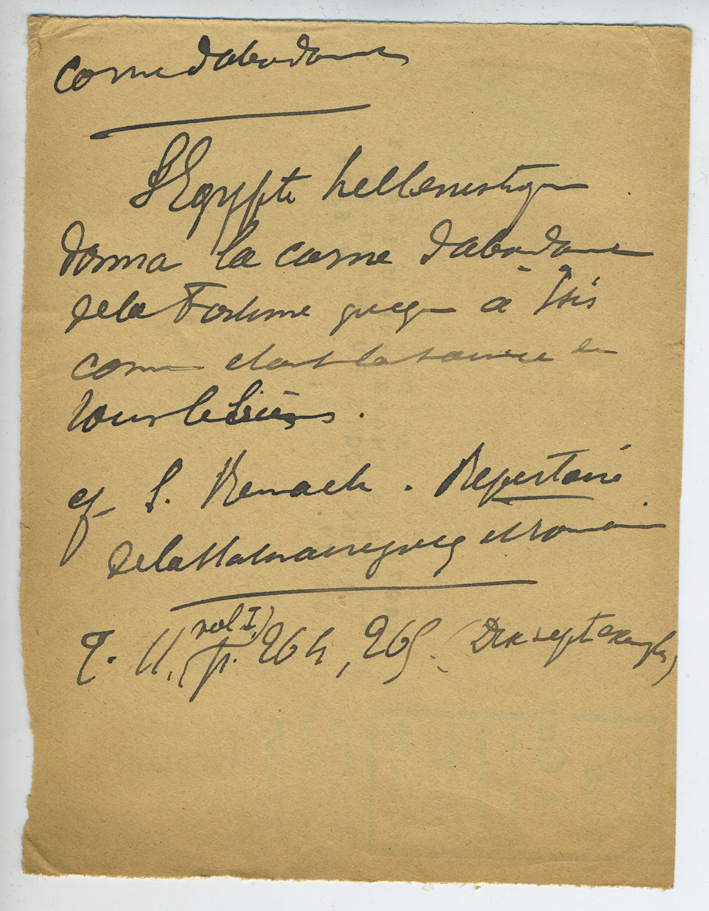 corne d'abondance
L'Egypte hellenistique
donna la corne d'abondance
de la Fortune grecque à Isis
comme
tous les
cf S. Reinach. Répertoire
de la statuaire grecq et romaine
T. II, (vol I.) p. 264, 265. (Dix sept exemples)